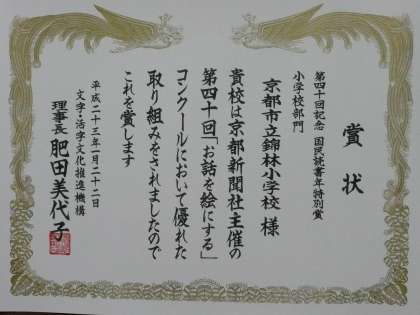 賞状
第四十回記念 国民読書年特別賞
小学校部門
京都市立錦林小学校 様
貴校は京都新聞社主催の
第四十回「お話を絵にする」
コンクールにおいて優れた
取り組みをされましたので
これを賞します
平成二十三年一月二十二日
文字・活字文化推進機構
理事長 肥田美代子